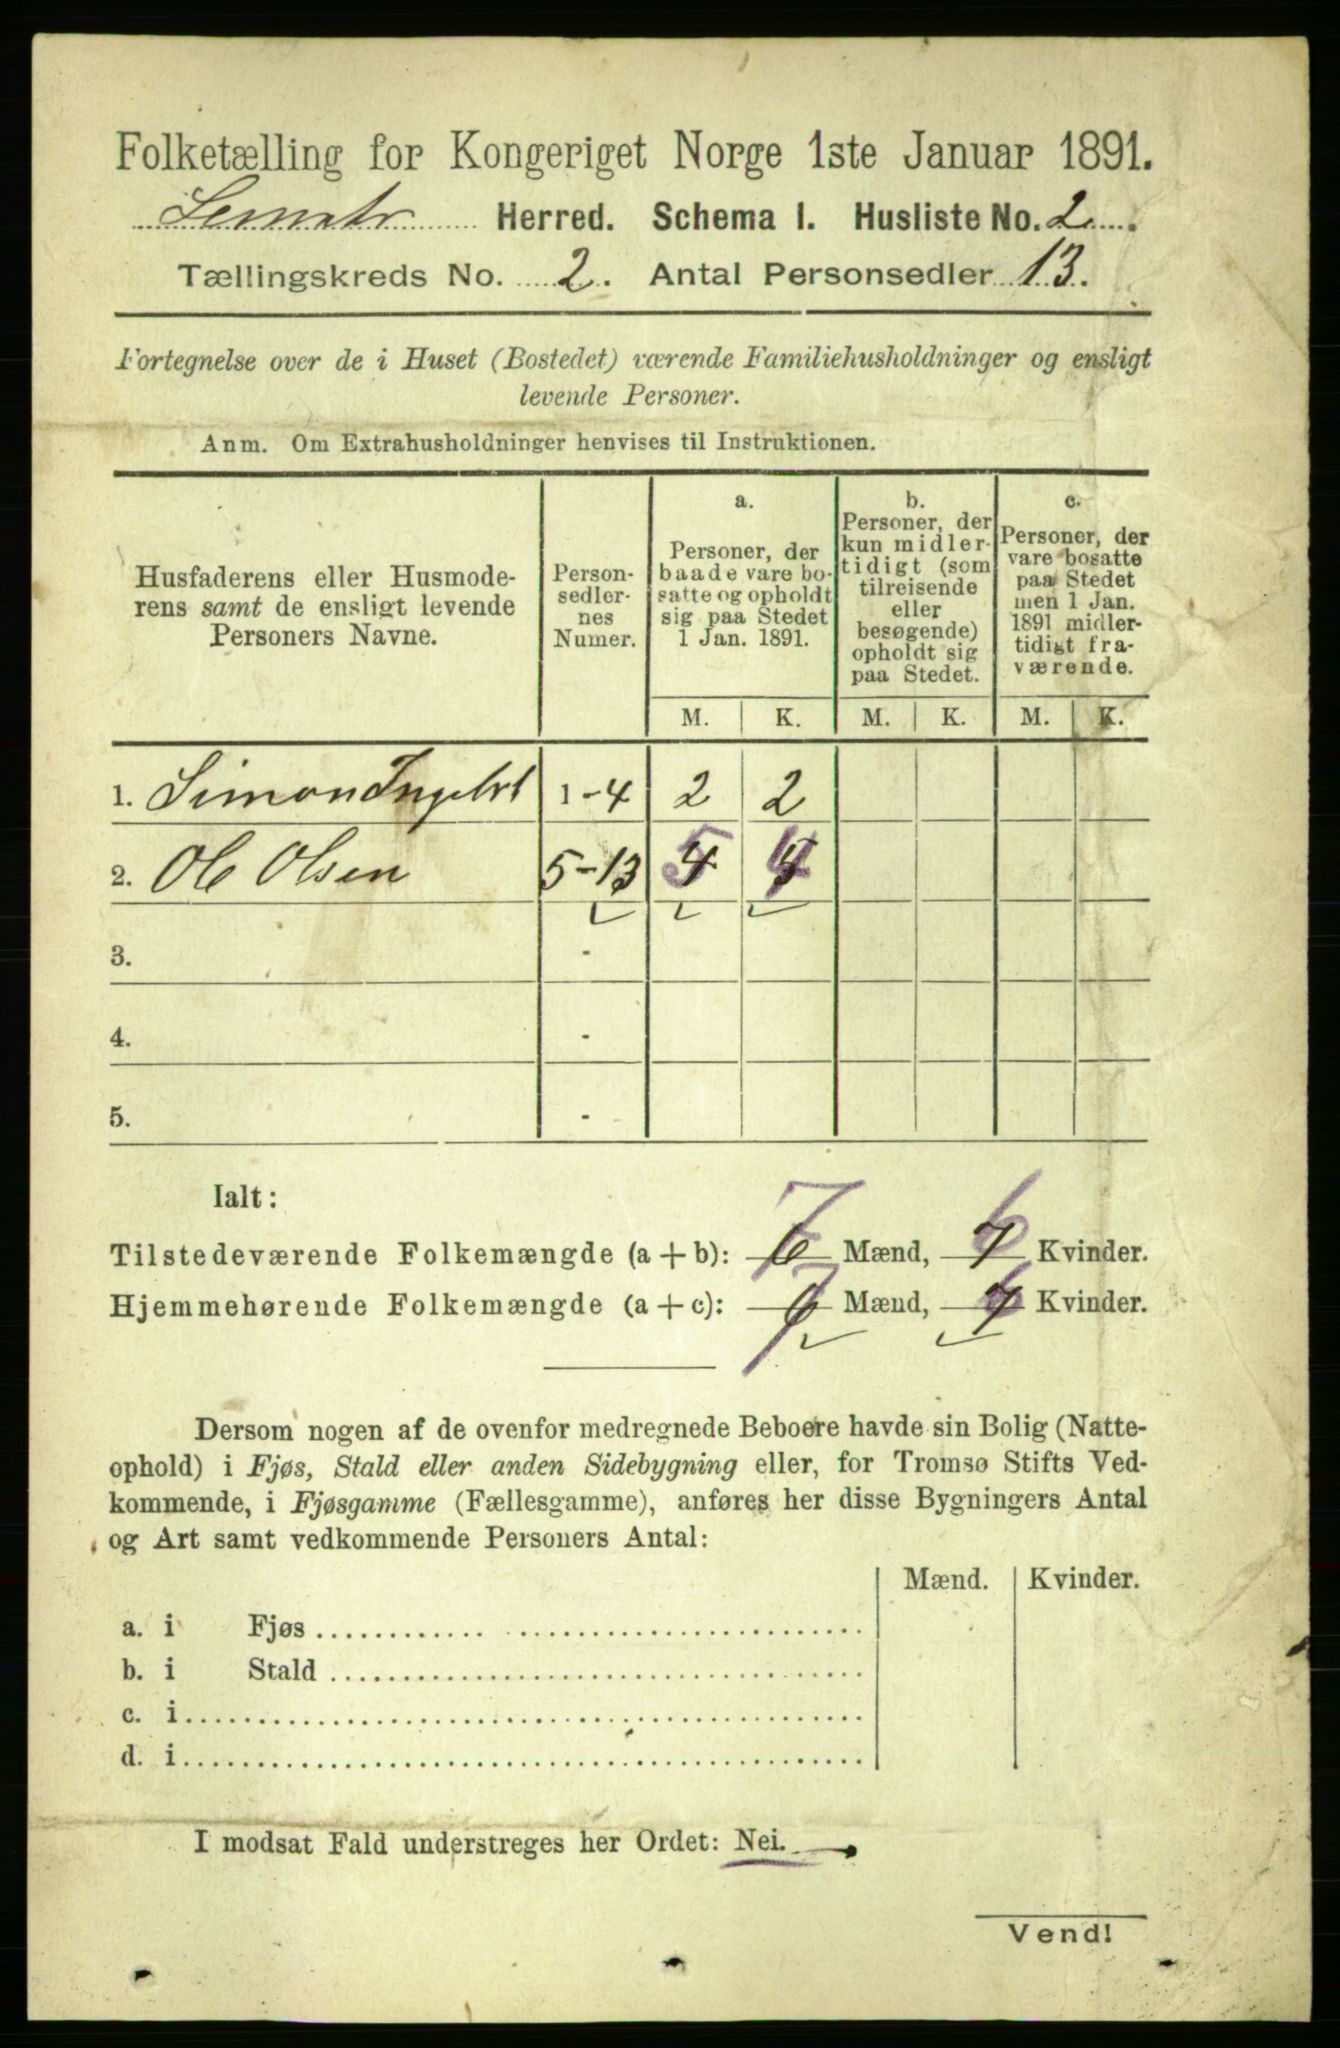 Folketælling for Kongeriget Norge 1ste Januar 1891.
Herred. Schema I. Husliste No. 2.
Tællingskreds No. 2. Antal Personsedler 13.
Fortegnelse over de i Huset (Bostedet) værende Familiehusholdninger og ensligt
levende Personer.
Anm. Om Extrahusholdninger henvises til Instruktionen.
Husfaderens eller Husmode-
rens samt de ensligt levende
Personers Navne.
Person-
sedler-
nes
Numer.
a.
Personer, der
baade vare bo-
satte og opholdt
sig paa Stedet
1 Jan. 1891.
b.
Personer, der
kun midler-
tidigt (som
tilreisende
eller
besøgende)
opholdt sig
paa Stedet.
c.
Personer, der
vare bosatte
paa Stedet
men 1 Jan.
1891 midler-
tidigt fra-
værende.
M. K. M. K. M. K.
1. Simon 1-4 2 2
2. Ole Olsen 5-13 4 5
3. -
4. -
5. -
Ialt:
Tilstedeværende Folkemængde (a + b): 6 7 Mænd, 7 6 Kvinder.
Hjemmehørende Folkemængde (a + c): 6 7 Mænd, 7 6 Kvinder.
Dersom nogen af de ovenfor medregnede Beboere havde sin Bolig (Natte-
ophold) i Fjøs, Stald eller anden Sidebygning eller, for Tromsø Stifts Ved-
kommende, i Fjøsgamme (Fællesgamme), anføres her disse Bygningers Antal
og Art samt vedkommende Personers Antal:
Mænd. Kvinder.
a. i Fjøs
b. i Stald
c. i
d. i
I modsat Fald understreges her Ordet: Nei.
Vend!